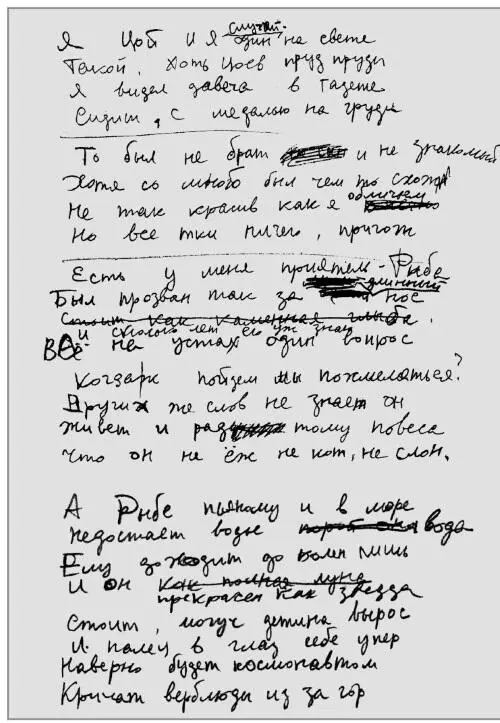 Я Цой и я случай
один на свете
Такой, хоть Цоев пруд пруди
Я видел давеча в газете
Сидит, с медалью на груди
То был не брат и не знакомый
Хотя со много был чем то схож
Не так красив как я обличьем
Но все тки ничего, пригож
Есть у меня приятель - Рыбе
Был прозван так за длинный нос
стоит как каменная глыба.
и сколько лет его уж знаю
Всё на устах один вопрос
Когда рк пойдем мы похмеляться?
Других же слов не знает он
живет и рад тому повеса
Что он не ёж не кот, не слон.
А Рыбе пьяному и в море
недостает воды вода
Ему доходит до колен лишь
И он как полная луна
прекрасен как звезда
Стоит, могуч детина вырос
И палец в глаз себе упер
Наверно будет космонавтом
Кричат верблюды из за гор